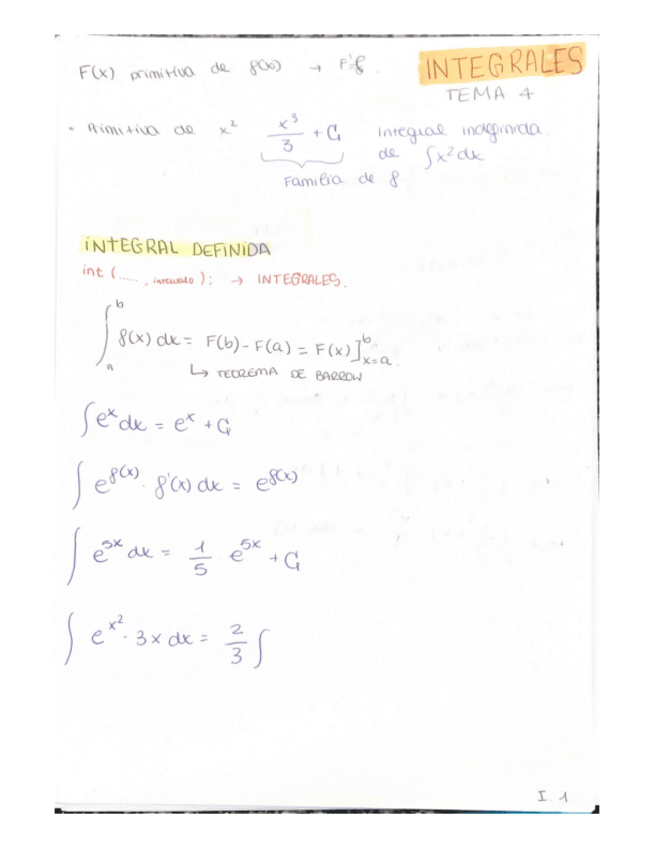 F(x) primitiva de f(x) → F'=f.
INTEGRALES
TEMA 4
• Primitiva de x² x³/3 + C Integral indefinida.
de ∫x²dx
Familia de f.
INTEGRAL DEFINIDA
int (......, intervalo); → INTEGRALES.
∫_a^b f(x) dx = F(b) - F(a) = F(x)]_{x=a}^b.
↳ TEOREMA DE BARROW
∫e^x dx = e^x + C
∫ e^{f(x)} · f'(x) dx = e^{f(x)}
∫ e^{5x} dx = 1/5 e^{5x} + C
∫ e^{x²} · 3x dx = 2/3 ∫
I. 1